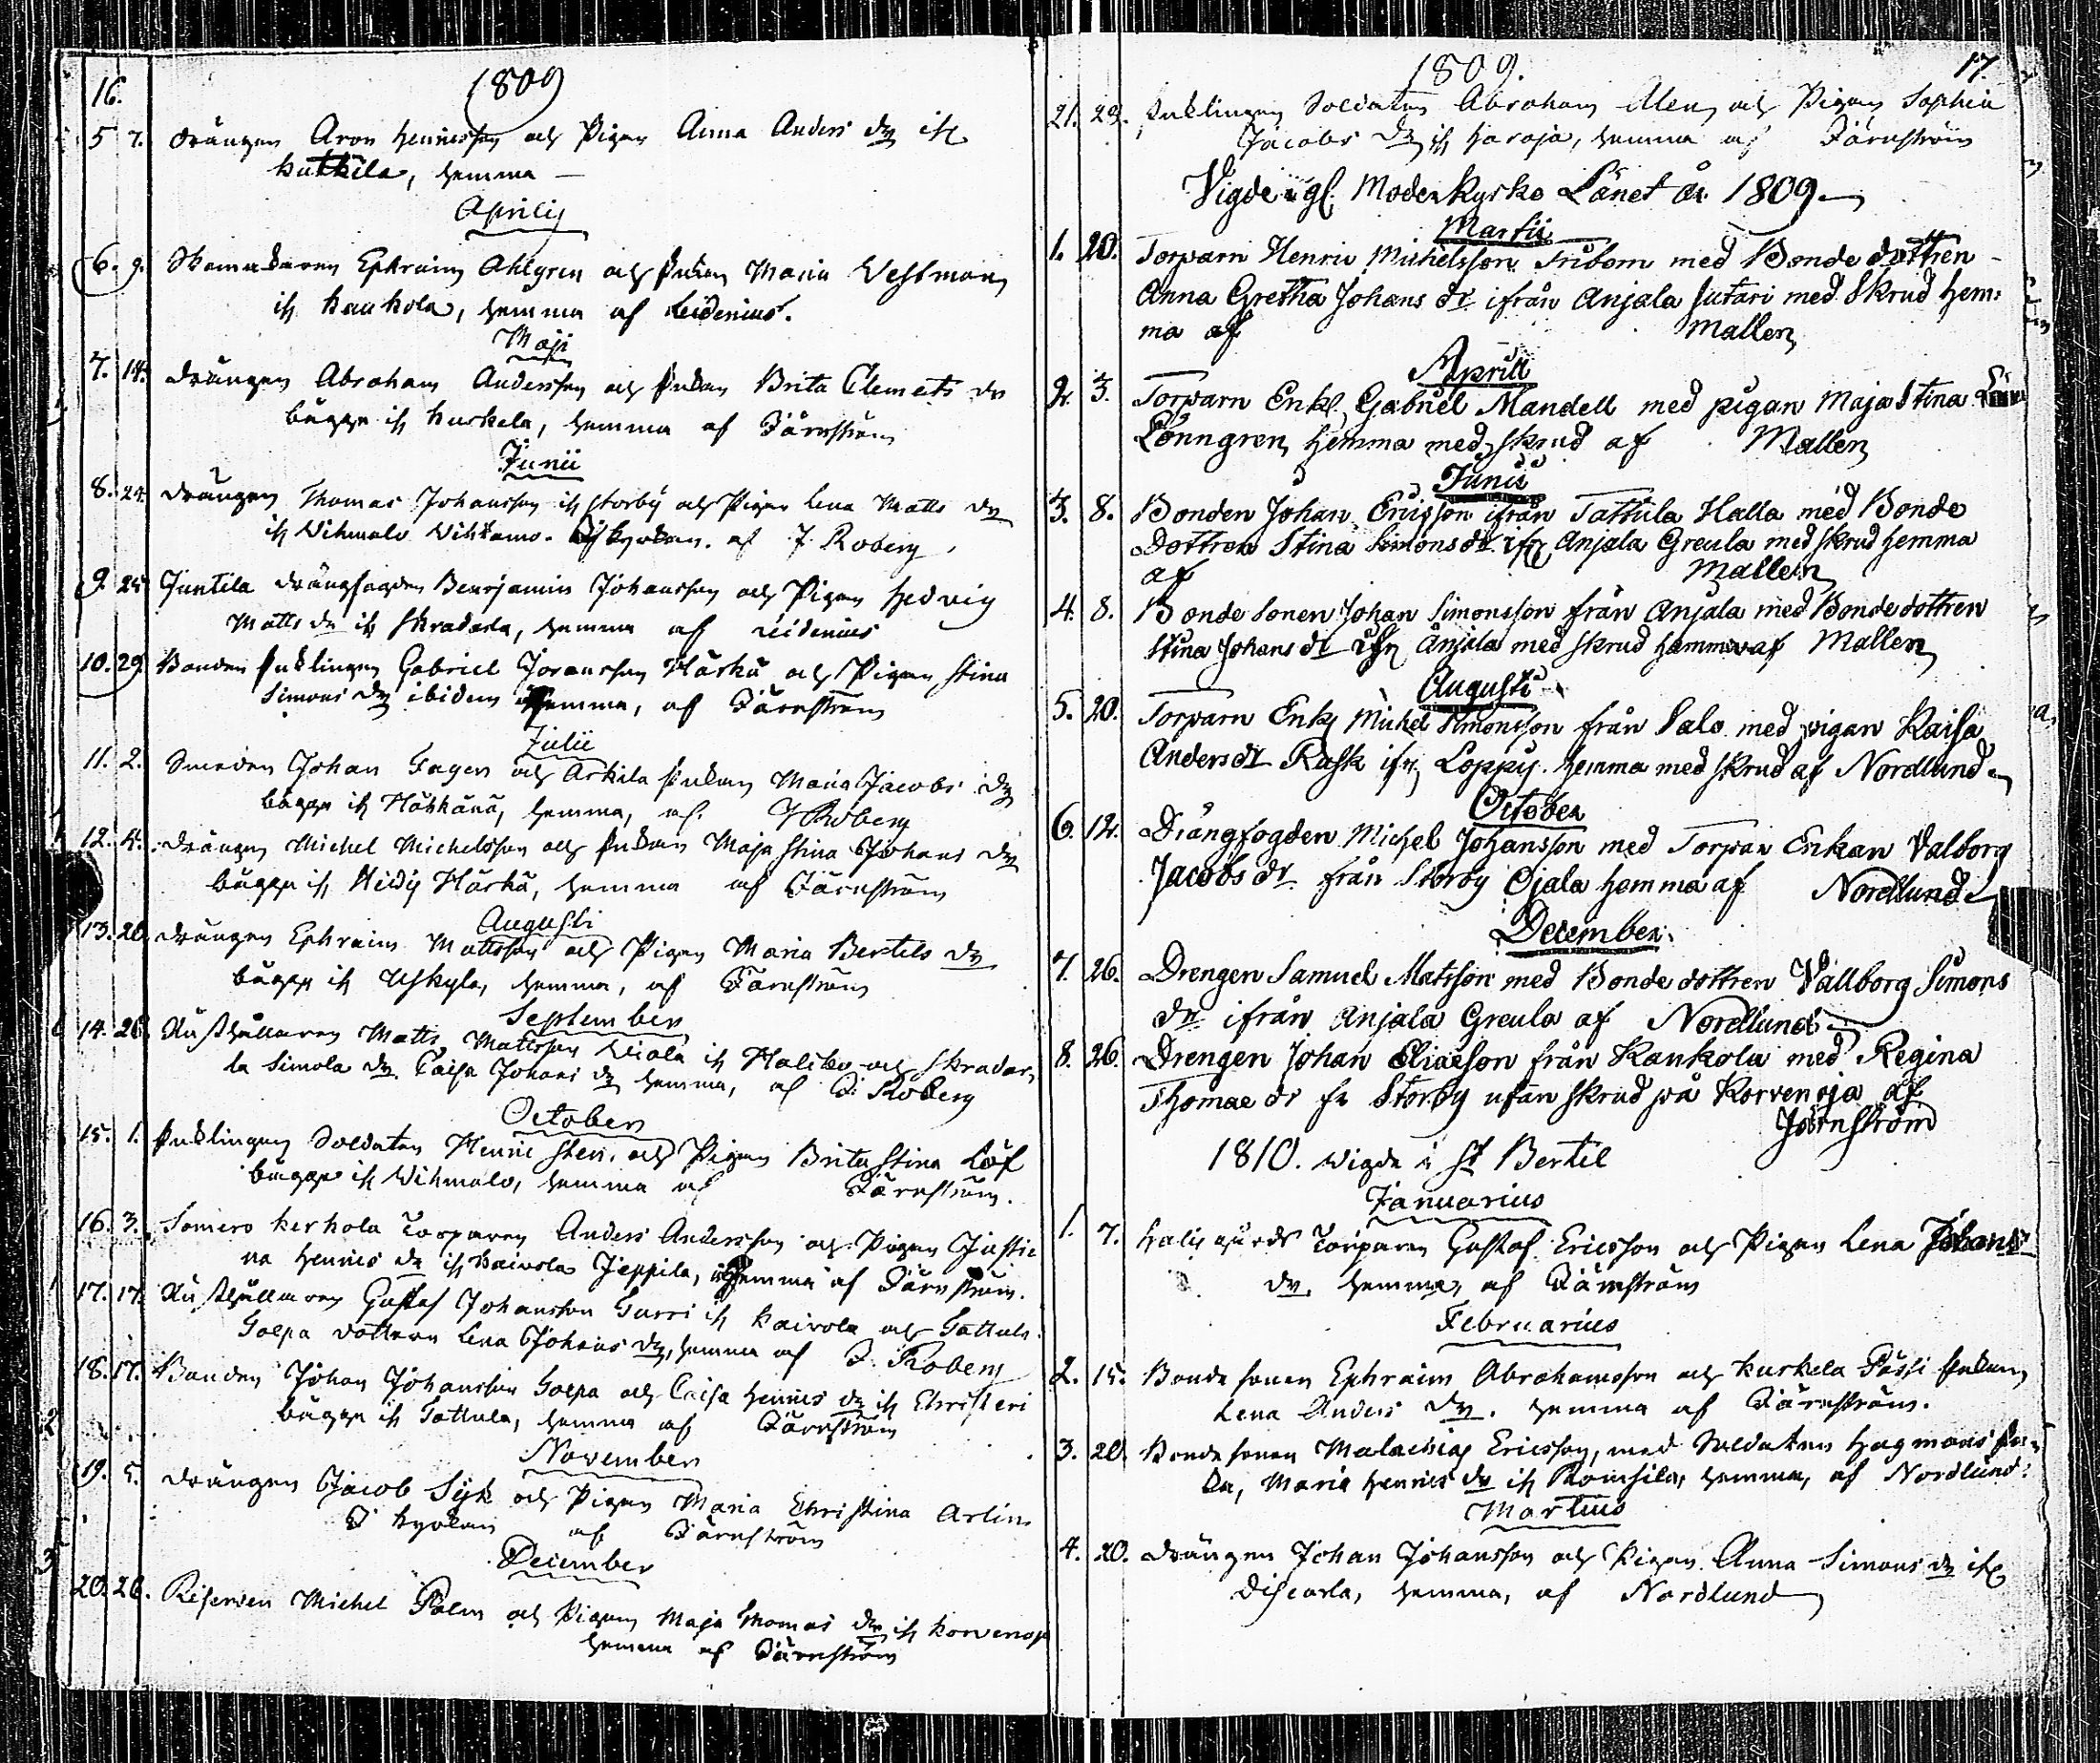 16.
1809
5 7. Drängen Aron Henricsson och Pigan Anna Anders dr ifr
Kuttila, hemma —
Aprilis
6. 9. Skomakaren Ephraim Ahlgren och Enkan Maria Vestman
ifr Kaukola, hemma af Leidenius.
Maji
7. 14. Drängen Abraham Andersson och Enkan Brita Clemets dr
bägge ifr Kurkela, hemma af Järnström
Junii
8. 24. Drängen Thomas Johansson ifr Storby och Pigan Lena Matts dr
ifr Wihmalo i kyrkan. af J. Roberg
9. 25. Juntila Drängfogden Benjamin Johansson och Pigan Hedvig
Matts dr ifr Skradarla, hemma af Leidenius
10. 29. Bonden Enklingen Gabriel Joransson Härkä och Pigan Stina
Simons dr ibidem hemma, af Järnström
Julii
11. 2. Smeden Johan Fagen och Arkila Enkan Maria Jacobs dr
bägge ifr Häkkänä, hemma, af J Roberg
12. 4. Drängen Michel Michelsson och Enkan Maja Stina Johans dr
bägge ifr Härkä, hemma af Järnström
Augusti
13. 20. Drängen Ephraim Mattsson och Pigan Maria Bertels dr
bägge ifr Uskyla, hemma, af Järnström
September
14. 26. Rusthållaren Matts Mattsson ifr Haliko och Skradar-
la Simola dr. Caisa Johans dr hemma, af J. Roberg
October
15. 1. Enklingen Soldaten Henric Sten, och Pigan Brita Stina Löf
bägge ifr Wihmalo, hemma af Järnström.
16. 3. Somero Kerkola Torparen Anders Andersson och Pigan Justi
na Henrics dr ifr Kaivola Jeppila, hemma af Järnström.
17. 17. Rusthållaren Gustaf Johansson ifr Kaivola och Tattula
Goepa dottern Lena Johans dr, hemma af J. Roberg
18. 17. Bonden Johan Johansson Goepa och Caisa Henrics dr ifr Christeri
bägge ifr Tattula, hemma af Järnström
November
19. 5. Drängen Jacob Sijk och Pigan Maria Christina Arlin
I kyrkan af Järnström
December
20. 26. Reserven Michel Palm och Pigan Maja Thomas dr ifr Korvenoja
hemma af Järnström
1809. 17.
21. 29. Enklingen Soldaten Abraham Alen och Pigan Sophia
Jacobs dr ifr Haroja, hemma af Järnström
Vigde i Moderkyrko Länet år 1809.
Martii
1. 20. Torparn Henric Michelsson Fribom med Bonde dottren
Anna Gretha Johans dr ifrån Anjala Sutari med Skrud hem:
ma af Mallen
Aprill
2. 3. Torparn Enkl. Gabriel Mandell med pigan Maja Stina
Lönngren hemma med skrud af Mallen
Junii
3. 8. Bonden Johan Ericsson ifrån Tattula Halla med Bonde
Dottren Stina Simons dr ifr Anjala Greula med skrud hemma
af Mallen
4. 8. Bonde Sonen Johan Simonsson från Anjala med Bonde dottren
Stina Johans dr ifr Anjala med skrud hemma af Mallen
Augusti
5. 20. Torparn Enkl Michel Simonsson från Salo med pigan Kaisa
Anders dr Rask ifr Loppis hemma med skrud af Nordlund
October
6. 12. Drängfogden Michel Johansson med Torpar Enkan Valborg
Jacobs dr från Storby Ojala hemma af Nordlund
December
7. 26. Drengen Samuel Matsson med Bonde dottren Vallborg Simons
dr ifrån Anjala Greula af Nordlund
8. 26. Drengen Johan Eliaeson från Kaukola med Regina
Thomae dr fr Storby utan skrud på Korvenoja af
Järnström
1810. Wigda i St Bertil
Januarius
1. 7. Torparen Gustaf Ericsson och Pigan Lena Johans
dr. hemma, af Järnström
Februarius
2. 15. Bonde Sonen Ephraim Abrahamsson och Kurkela Pässi Enkan
Lena Anders dr. hemma af Järnström.
3. 20. Bonde Sonen Malachias Ericsson, med Soldaten Hagmans En-
ka, Maria Henrics dr ifr hemma, af Nordlund.
Martius
4. 20. Drängen Johan Johansson och Pigan Anna Simons dr ifr
hemma, af Nordlund